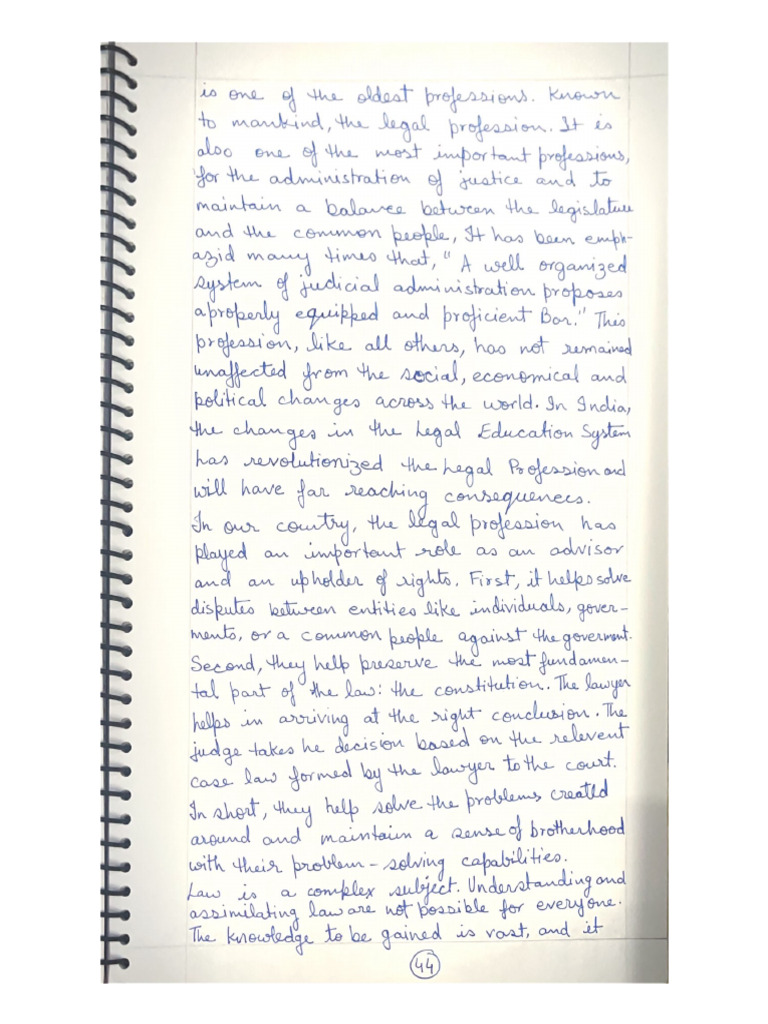 is one of the oldest professions. Known
to mankind, the legal profession. It is
also one of the most important professions,
for the administration of justice and to
maintain a balance between the legislature
and the common people, It has been emph-
azid many times that, "A well organized
system of judicial administration proposes
a properly equipped and proficient Bar." This
profession, like all others, has not remained
unaffected from the social, economical and
political changes across the world. In India,
the changes in the Legal Education System
has revolutionized the Legal Profession and
will have far reaching consequences.
In our country, the legal profession has
played an important role as an advisor
and an upholder of rights. First, it helps solve
disputes between entities like individuals, gover-
ments, or a common people against the goverment.
Second, they help preserve the most fundamen-
tal part of the law: the constitution. The lawyer
helps in arriving at the right conclusion. The
judge takes he decision based on the relevent
case law formed by the lawyer to the court.
In short, they help solve the problems created
around and maintain a sense of brotherhood
with their problem-solving capabilities.
Law is a complex subject. Understanding and
assimilating law are not possible for everyone.
The knowledge to be gained is vast, and it
44